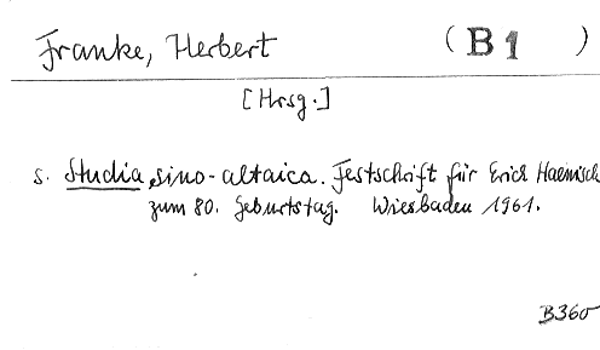 Franke, Herbert (B1 )
[Hrsg.]
s. Studia sino-altaica. Festschrift für Erich Haenisch
zum 80. Geburtstag. Wiesbaden 1961.
B360